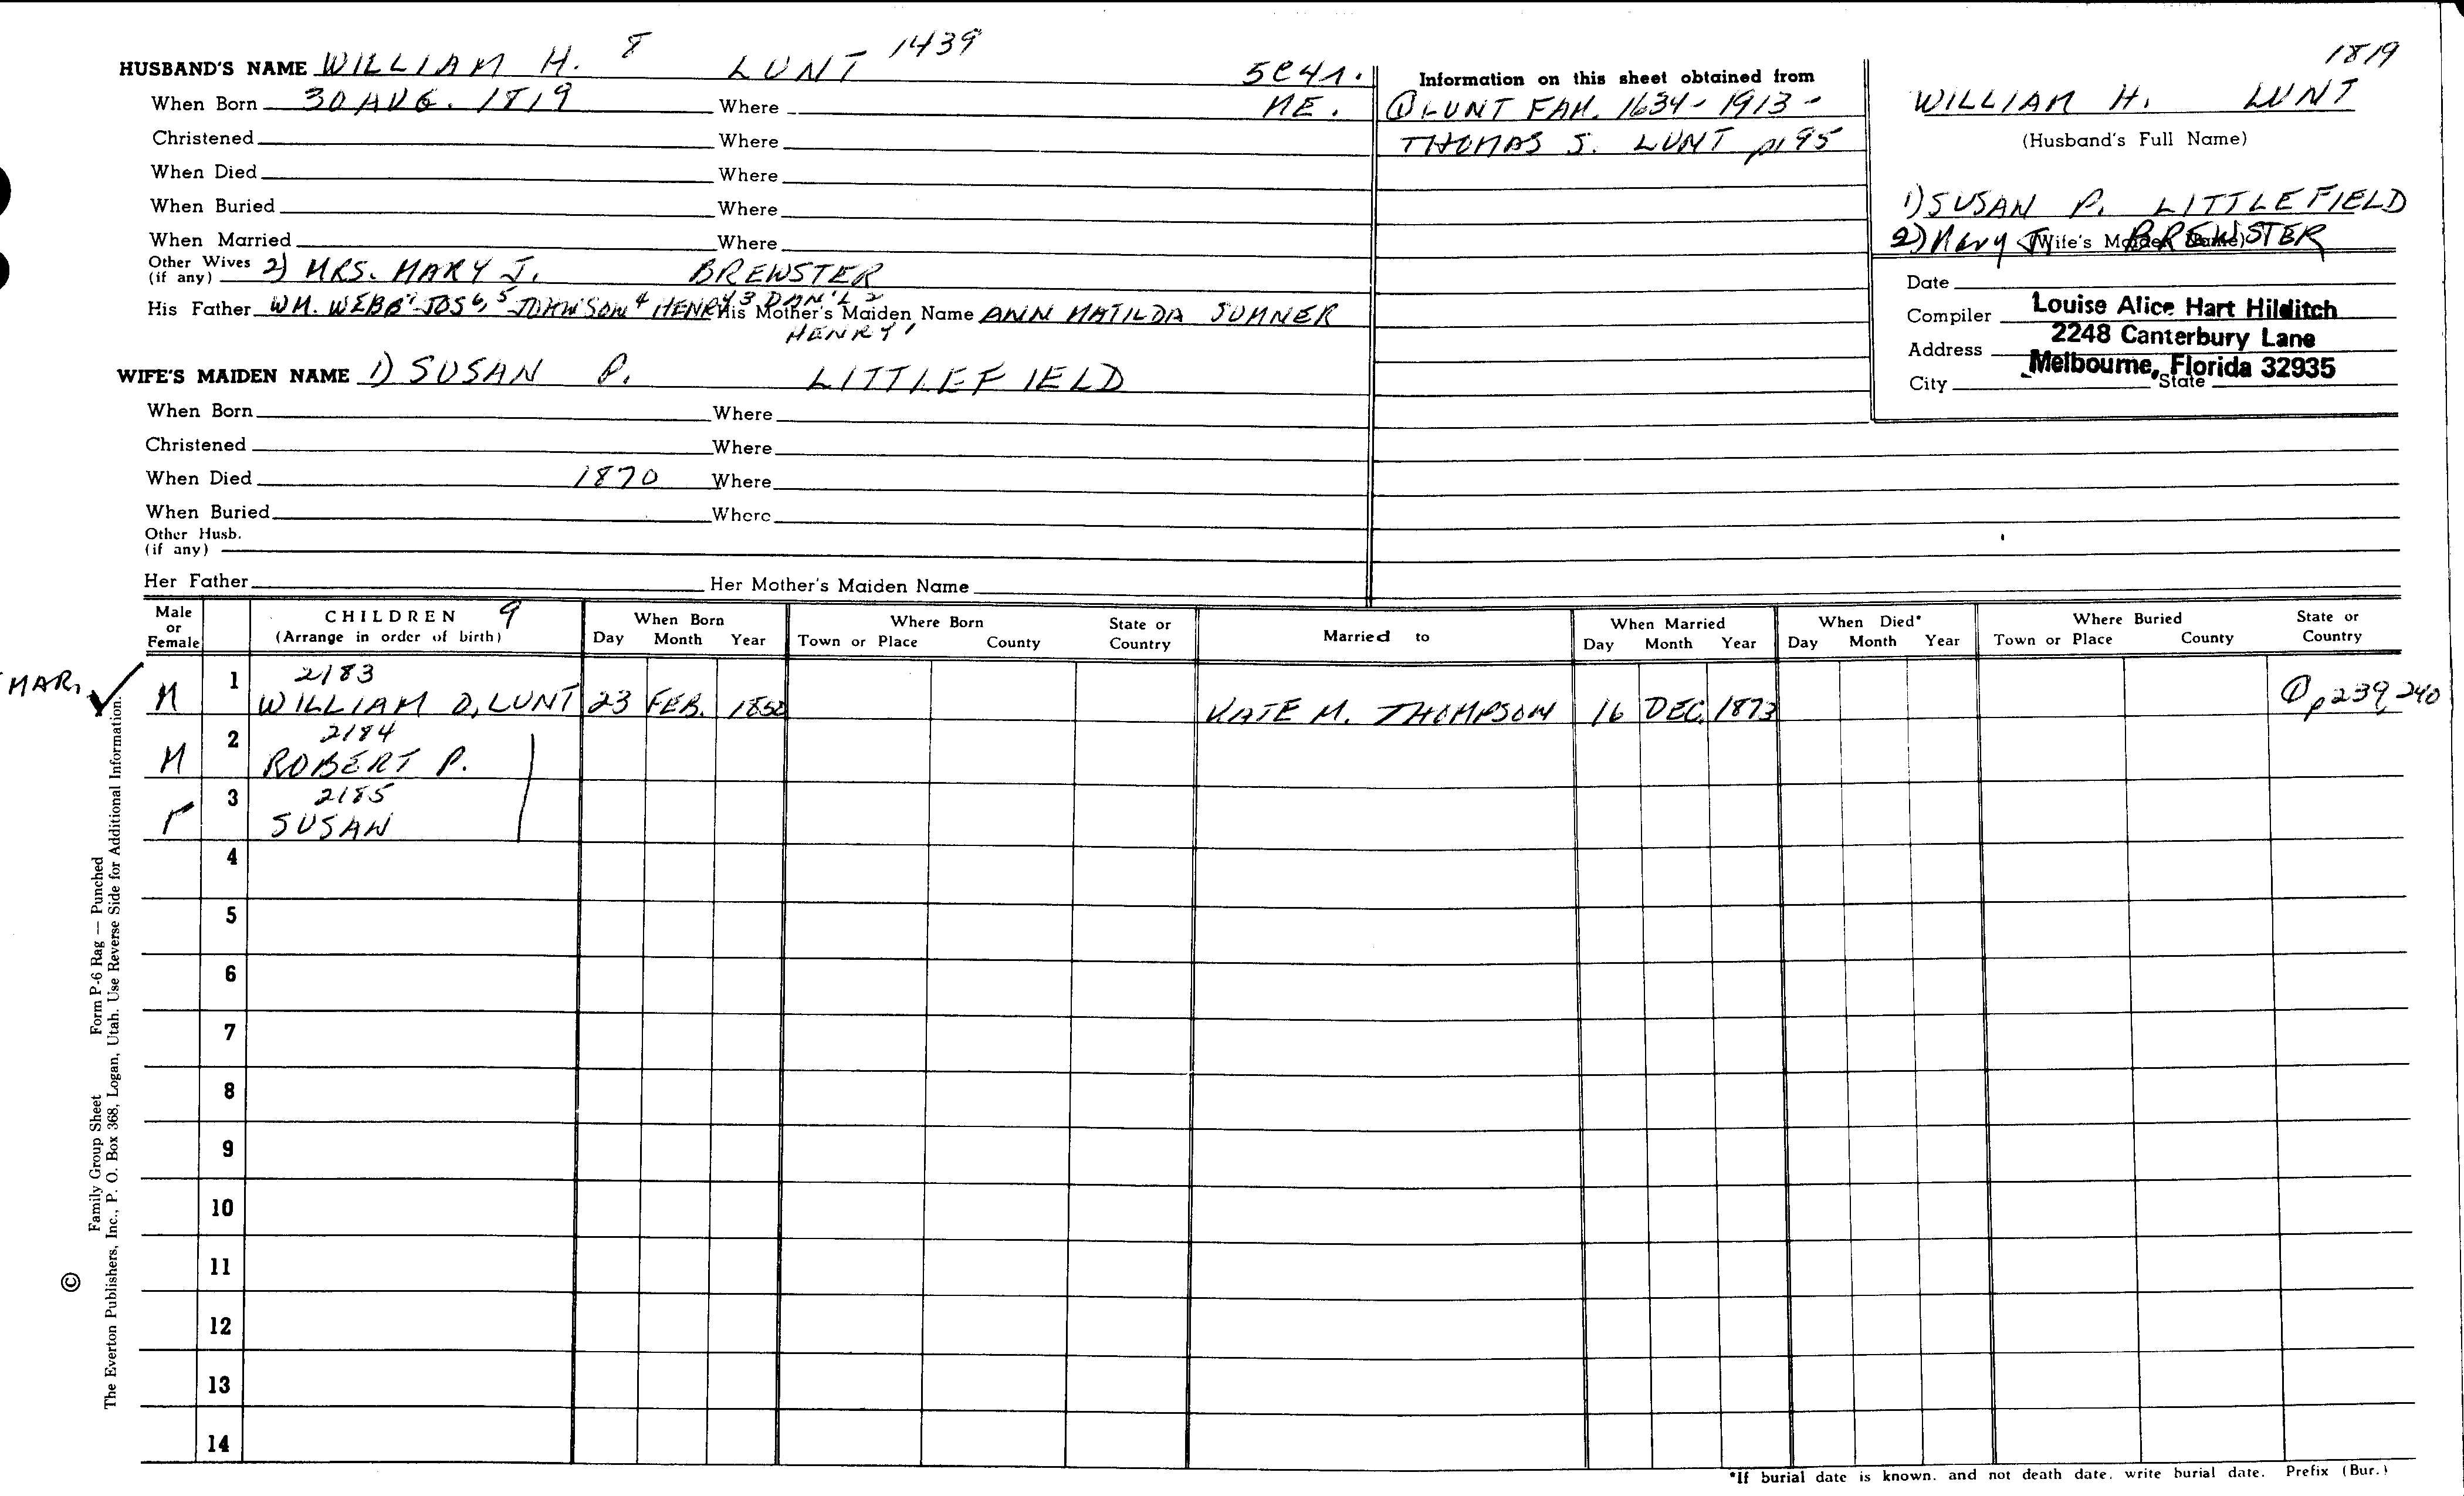 HUSBAND'S NAME WILLIAM H. 8 LUNT 1439
When Born 30 AUG. 1819 Where ME.
Christened Where
When Died Where
When Buried Where
When Married Where
Other Wives (if any) 2) MRS. MARY J. BREWSTER
His Father WM. WEBB7 JOS6, 5 JOHNSON4 HENRY3 DAN'L2 His Mother's Maiden Name ANN MATILDA SUMNER
HENRY1
WIFE'S MAIDEN NAME 1) SUSAN P. LITTLEFIELD
When Born Where
Christened Where
When Died 1870 Where
When Buried Where
Other Husb.
(if any)
Her Father Her Mother's Maiden Name
Information on this sheet obtained from
① LUNT FAM. 1634-1913-
THOMAS S. LUNT p195
1819
WILLIAM H. LUNT
(Husband's Full Name)
1) SUSAN P. LITTLEFIELD
2) Mary J. BREWSTER
(Wife's Maiden Name)
Date
Compiler Louise Alice Hart Hilditch
Address 2248 Canterbury Lane
Melbourne, Florida 32935
City State
Male or Female CHILDREN 9 (Arrange in order of birth) When Born Day Month Year Where Born Town or Place County State or Country Married to When Married Day Month Year When Died* Day Month Year Where Buried Town or Place County State or Country
MAR. ✓ M 1 2183 WILLIAM D. LUNT 23 FEB. 1850 KATE M. THOMPSON 16 DEC. 1873 ① p239,240
M 2 2184 ROBERT P.
F 3 2185 SUSAN
4
5
6
7
8
9
10
11
12
13
14
*If burial date is known, and not death date, write burial date. Prefix (Bur.)
© Family Group Sheet Form P-6 Rag — Punched
The Everton Publishers, Inc., P. O. Box 368, Logan, Utah. Use Reverse Side for Additional Information.